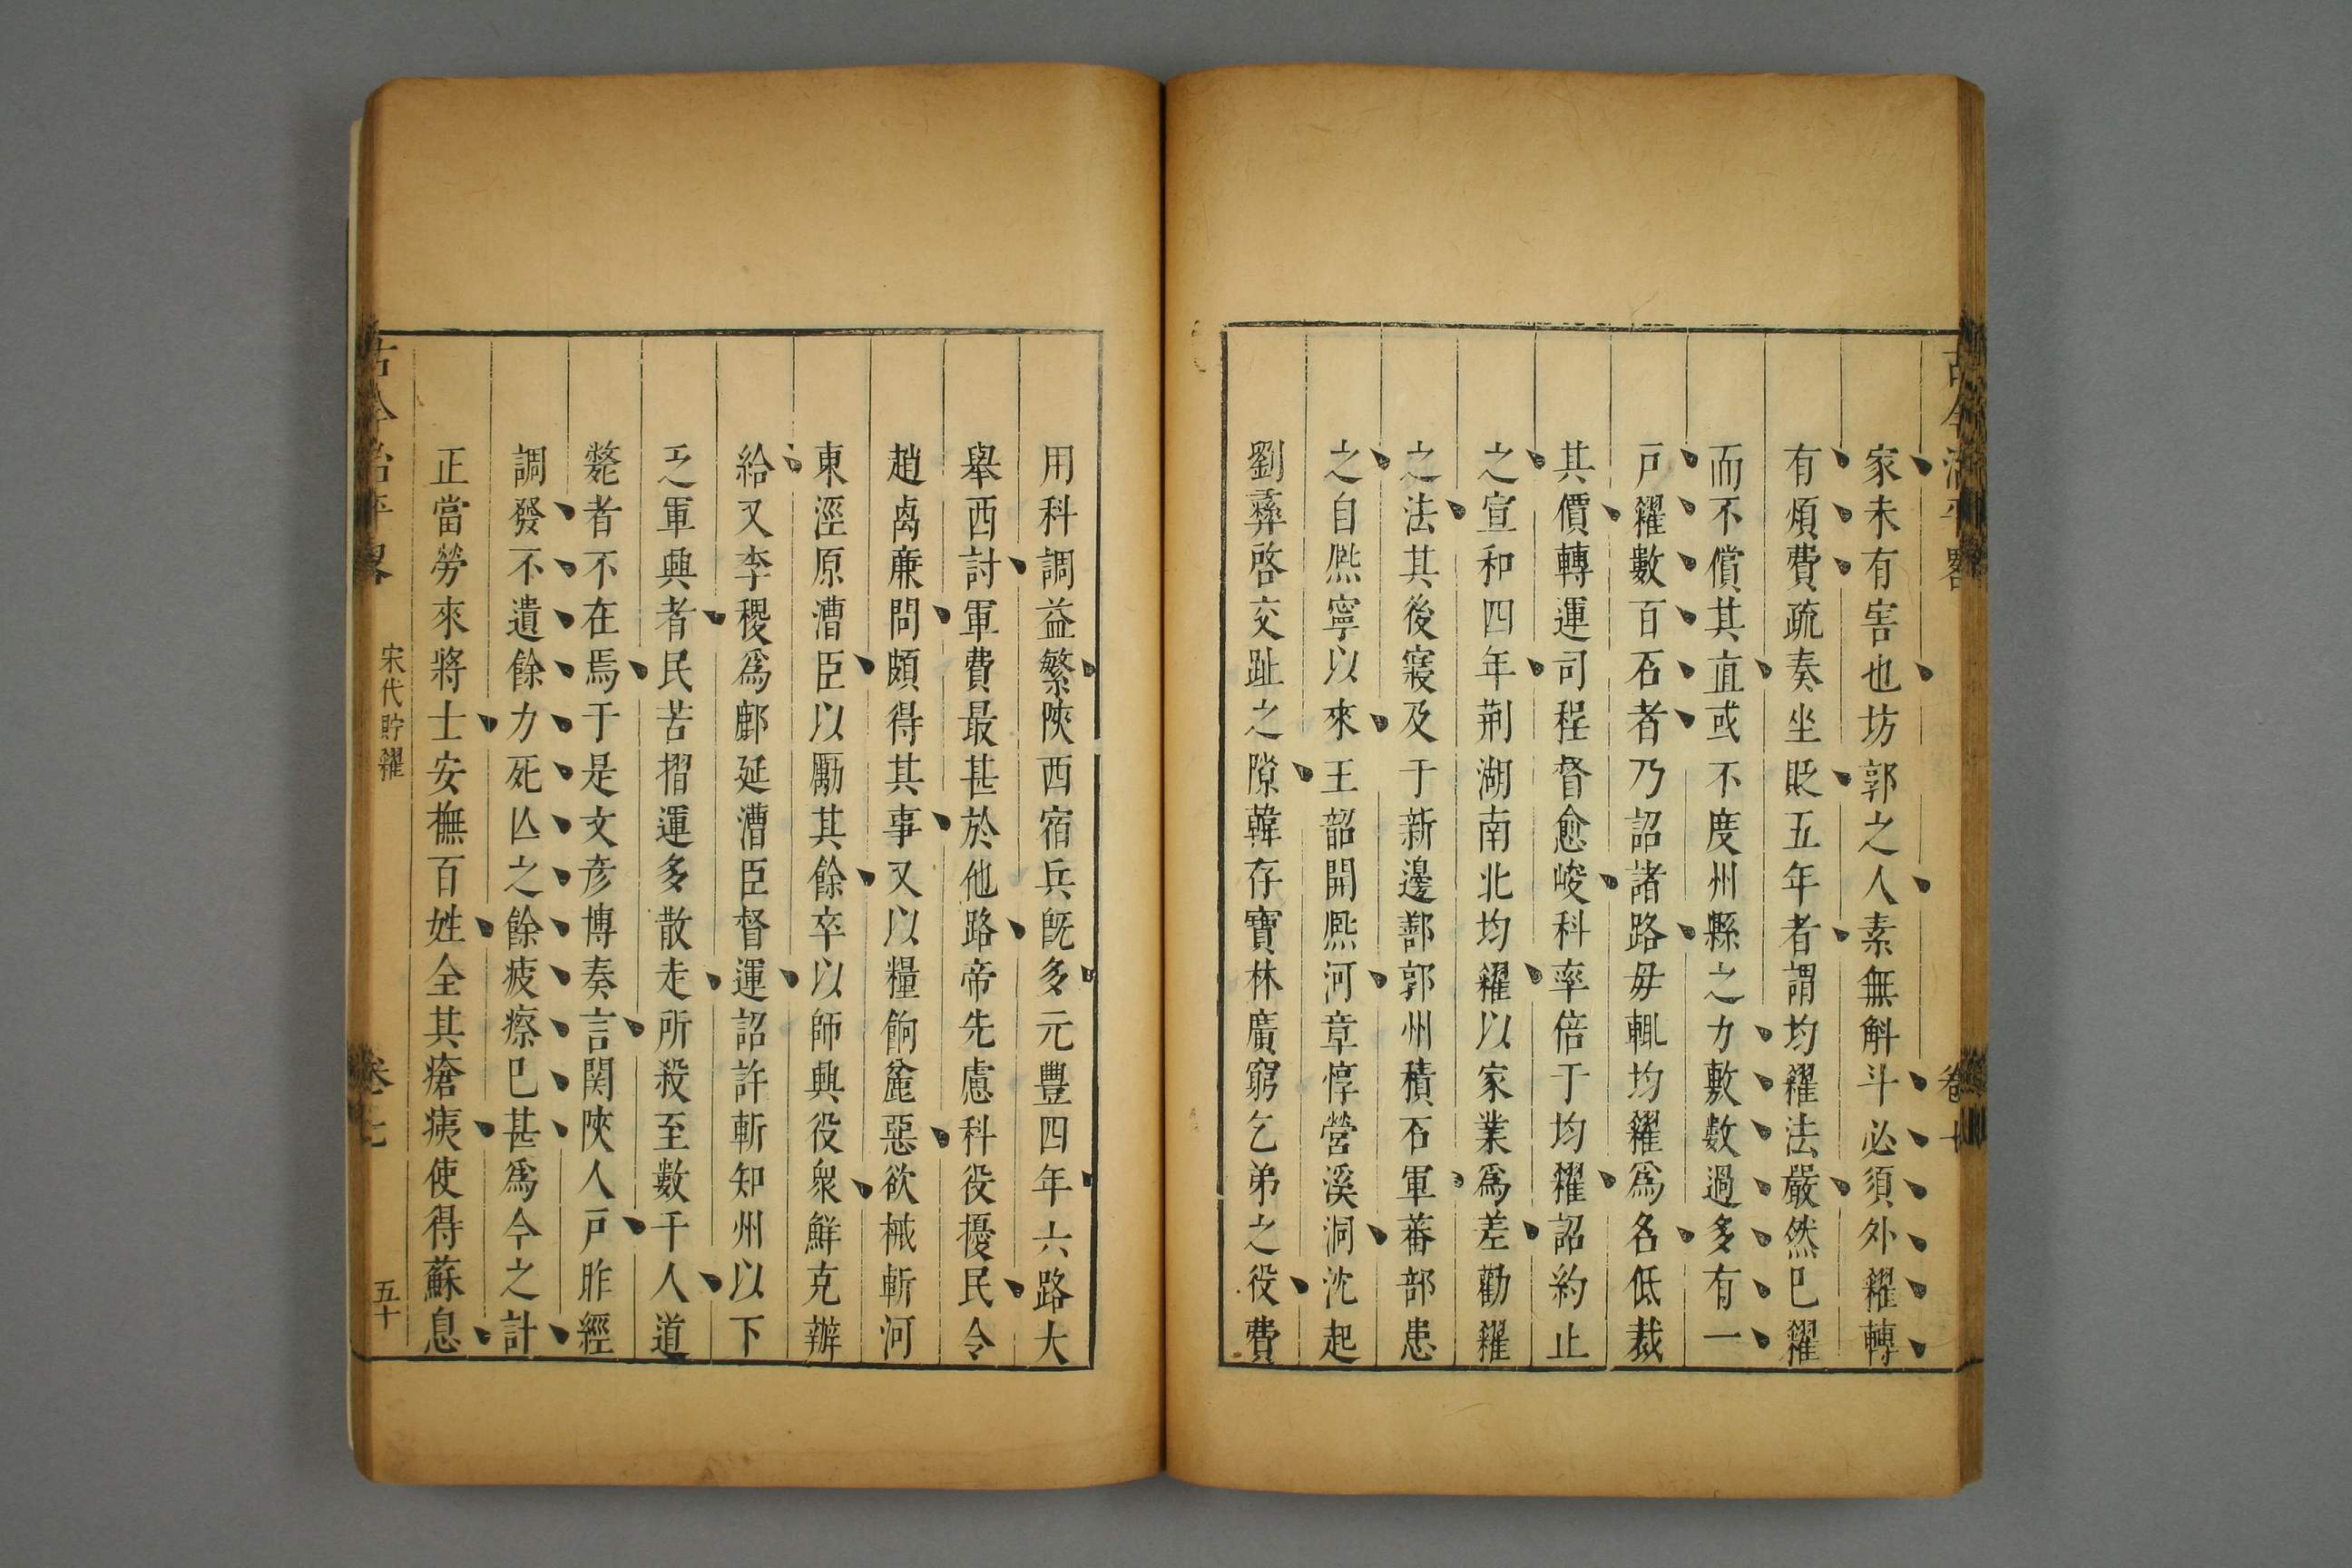 家未有害也坊郭之人素無斛斗必須外糴轉
有煩費疏奏坐貶五年者謂均糴法嚴然已糴
而不償其直或不度州縣之力敷數過多有一
戸糴數百石者乃詔諸路毋輒均糴爲名低裁
其價轉運司程督愈峻科率倍于均糴詔約止
之宣和四年荆湖南北均糴以家業爲差勸糴
之法其後寢及于新邊鄯郭州積石軍蕃部患
之自熈寧以來王韶開熈河章惇營溪洞沈起
劉彞啓交趾之隙韓存寶林廣窮乞弟之役費
用科調益繁陝西宿兵旣多元豐四年六路大
舉西討軍費最甚於他路帝先慮科役擾民令
趙卨廉問頗得其事又以糧餉麄惡欲械斬河
東涇原漕臣以勵其餘卒以師興役衆鮮克辦
給又李稷爲鄜延漕臣督運詔許斬知州以下
乏軍興者民苦摺運多散走所殺至數千人道
斃者不在焉于是文彦博奏言関陝人戸昨經
調發不遺餘力死亾之餘疲瘵已甚爲今之計
正當勞來將士安撫百姓全其瘡痍使得蘇息
古今治平畧
宋代貯糴
卷七
五十